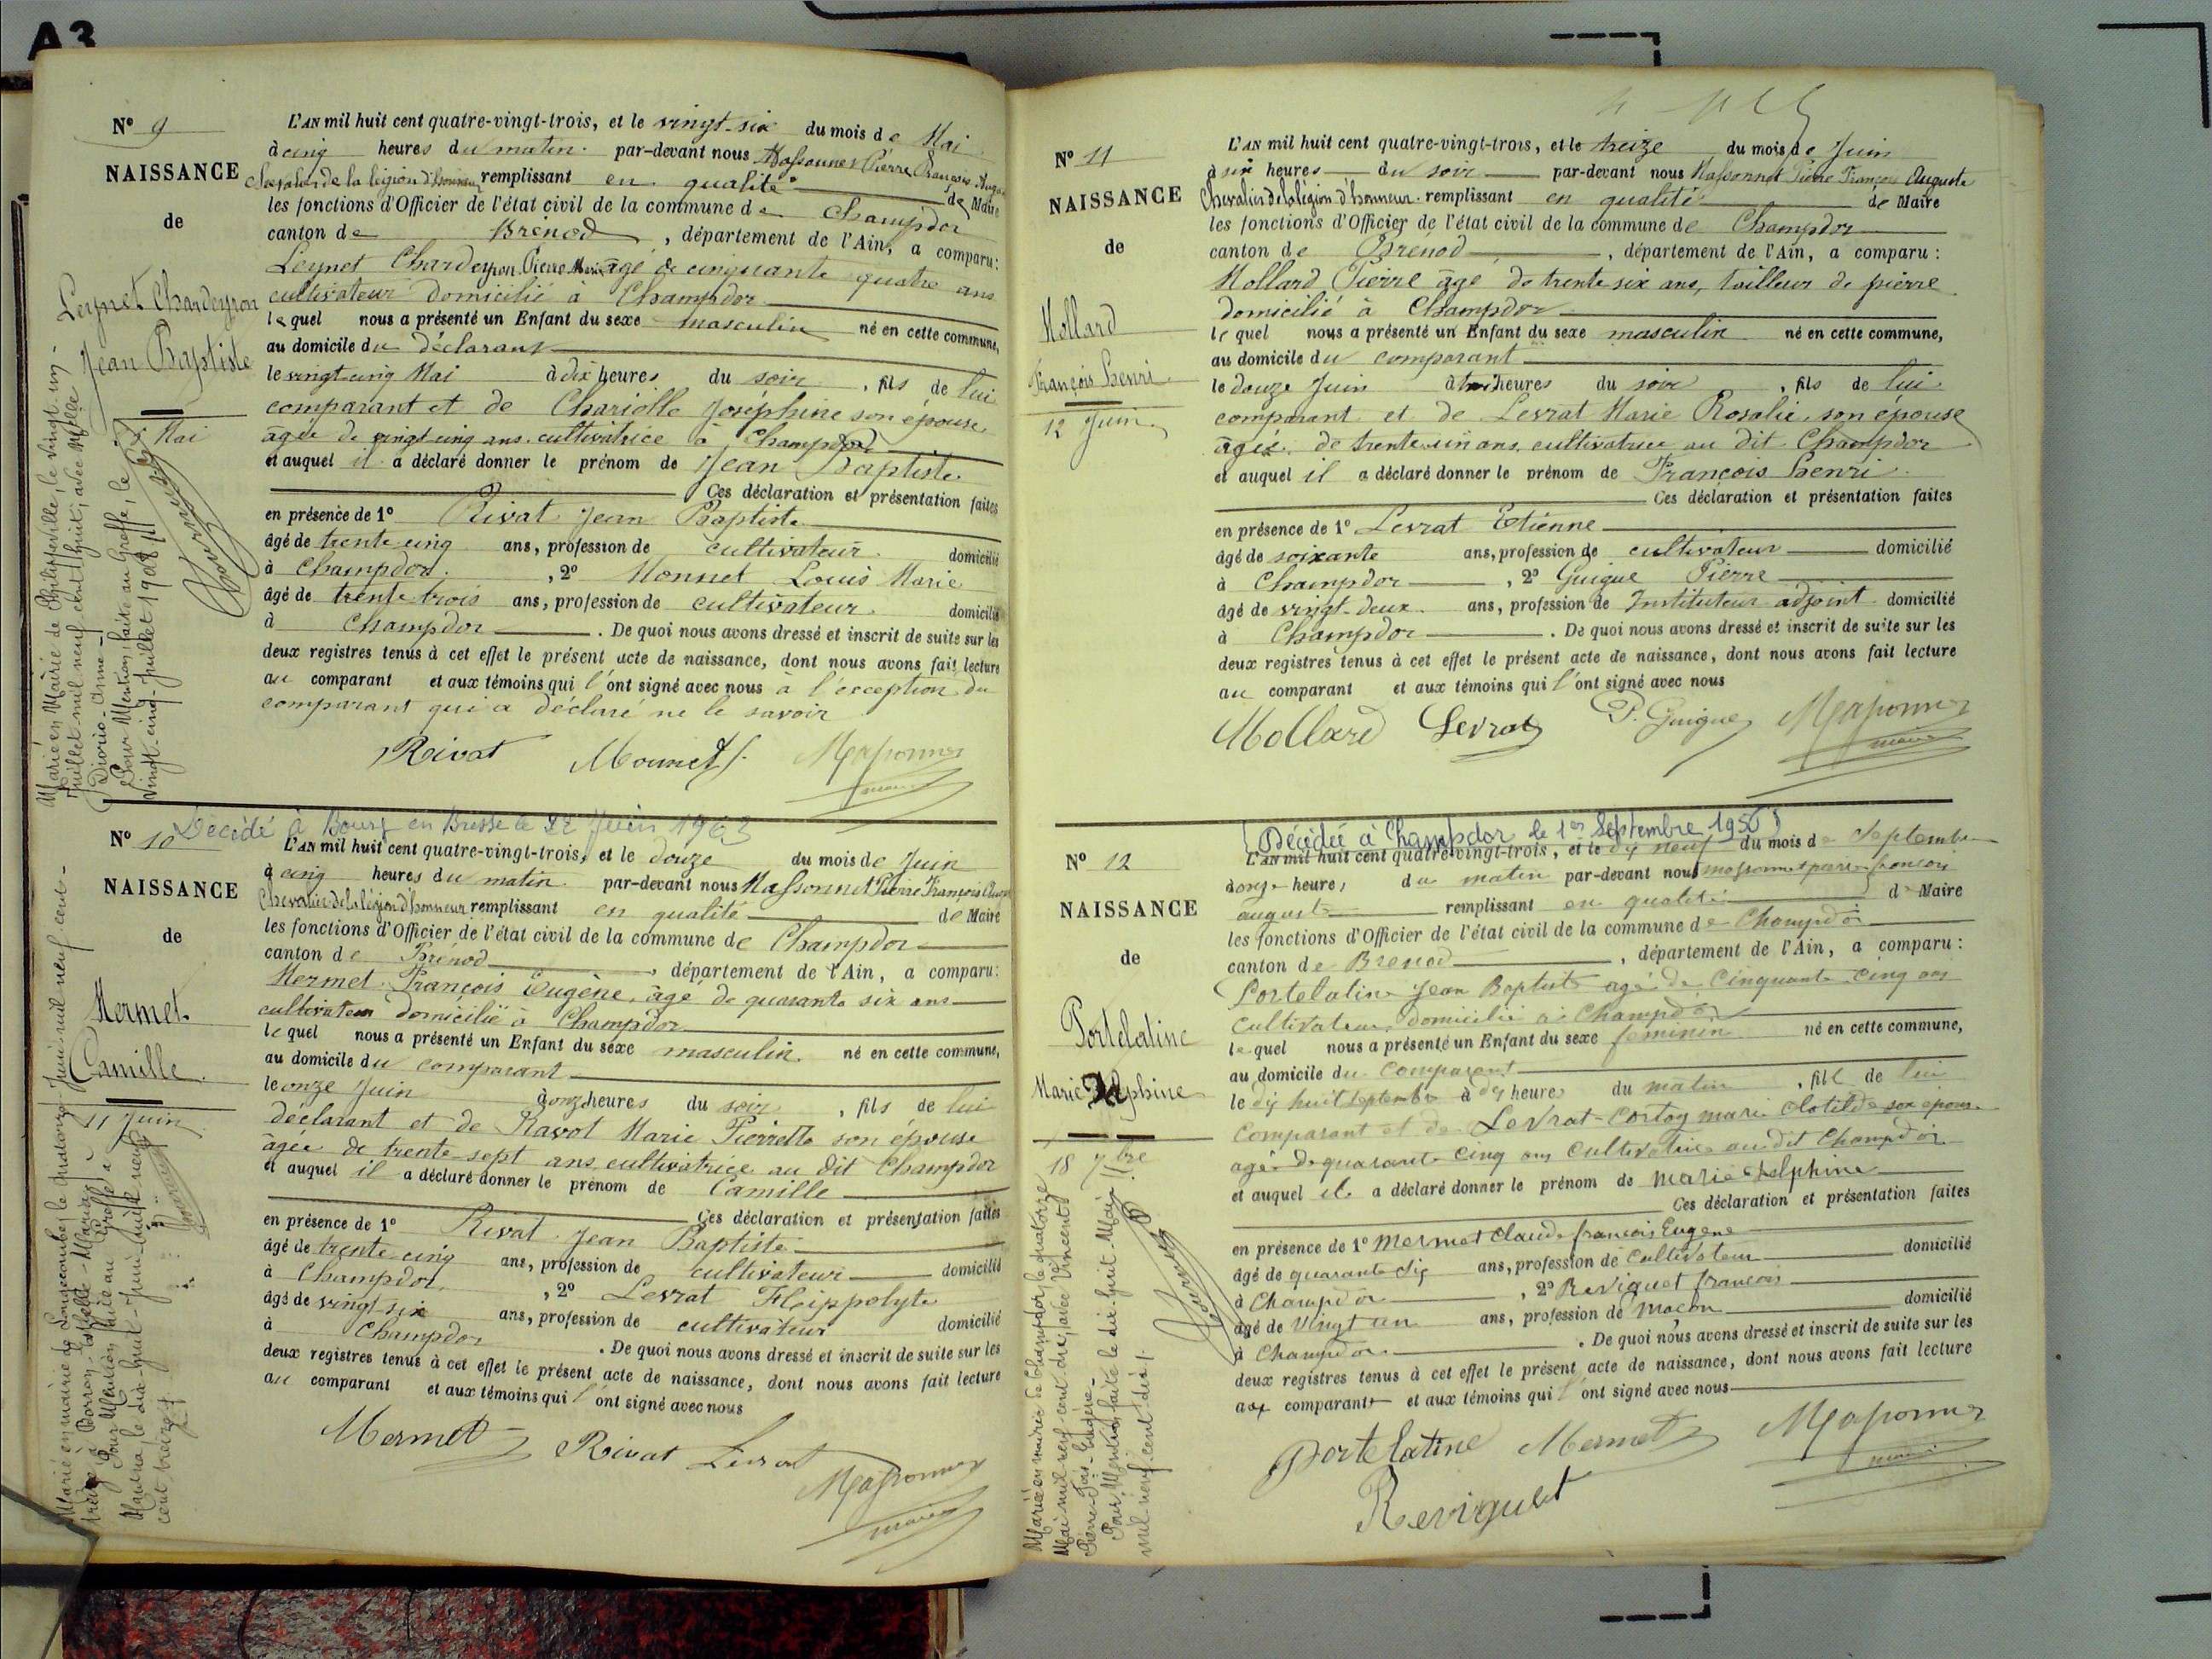 A3
N° 9
NAISSANCE
de
Leynet Chardeyron
Jean Baptiste
25 Mai
Marié en Mairie de Philippeville, le vingt-un-
Juillet mil neuf cent huit, avec Melle
Diorio - Anne -|
Pour Mention, faite au Greffe, le
vingt-cinq-Juillet 1908 /|||
L'AN mil huit cent quatre-vingt-trois, et le vingt-six du mois de Mai
à cinq heures du matin par-devant nous Massonnet Pierre François
Chevalier de la légion d'honneur remplissant en qualité de Maire
les fonctions d'Officier de l'état civil de la commune de Champdor
canton de Brénod, département de l'Ain, a comparu:
Leynet Chardeyron Pierre Marie âgé de cinquante quatre ans
cultivateur domicilié à Champdor
lequel nous a présenté un Enfant du sexe masculin né en cette commune,
au domicile du déclarant
le vingt-cinq Mai à dix heures du soir, fils de lui
comparant et de Chariolle Joséphine son épouse
âgée de vingt cinq ans cultivatrice à Champdor
et auquel il a déclaré donner le prénom de Jean Baptiste
Ces déclaration et présentation faites
en présence de 1° Rivat Jean Baptiste
âgé de trente cinq ans, profession de cultivateur domicilié
à Champdor, 2° Monnet Louis Marie
âgé de trente trois ans, profession de cultivateur domicilié
à Champdor. De quoi nous avons dressé et inscrit de suite sur les
deux registres tenus à cet effet le présent acte de naissance, dont nous avons fait lecture
au comparant et aux témoins qui l'ont signé avec nous à l'exception du
comparant qui a déclaré ne le savoir
Rivat Monnet Massonnet
maire
N° 10 Décédé à Bourg en Bresse le 22 Juin 1963
NAISSANCE
de
Mermet
Camille
11 Juin
L'AN mil huit cent quatre-vingt-trois, et le douze du mois de Juin
à cinq heures du matin par-devant nous Massonnet Pierre François
Chevalier de la légion d'honneur remplissant en qualité de Maire
les fonctions d'Officier de l'état civil de la commune de Champdor
canton de Brénod, département de l'Ain, a comparu:
Mermet François Eugène, âgé de quarante six ans
cultivateur domicilié à Champdor
lequel nous a présenté un Enfant du sexe masculin né en cette commune,
au domicile du comparant
le onze Juin à onze heures du soir, fils de lui
déclarant et de Ravot Marie Pierrette son épouse
âgée de trente-sept ans cultivatrice au dit Champdor
et auquel il a déclaré donner le prénom de Camille
Ces déclaration et présentation faites
en présence de 1° Rivat Jean Baptiste
âgé de trente-cinq ans, profession de cultivateur domicilié
à Champdor, 2° Levrat Hippolyte
âgé de vingt-six ans, profession de cultivateur domicilié
à Champdor. De quoi nous avons dressé et inscrit de suite sur les
deux registres tenus à cet effet le présent acte de naissance, dont nous avons fait lecture
au comparant et aux témoins qui l'ont signé avec nous
Mermet Rivat Levrat
Massonnet
maire
N° 11
NAISSANCE
de
Mollard
François Henri
12 Juin
L'AN mil huit cent quatre-vingt-trois, et le treize du mois de Juin
à six heures du soir par-devant nous Massonnet Pierre François Auguste
Chevalier de la légion d'honneur remplissant en qualité de Maire
les fonctions d'Officier de l'état civil de la commune de Champdor
canton de Brénod, département de l'Ain, a comparu:
Mollard Pierre âgé de trente-six ans, tailleur de pierre
domicilié à Champdor
lequel nous a présenté un Enfant du sexe masculin né en cette commune,
au domicile du comparant
le douze Juin à heures du soir, fils de lui
comparant et de Levrat Marie Rosalie son épouse
âgée de trente-un ans, cultivatrice au dit Champdor
et auquel il a déclaré donner le prénom de François Henri
Ces déclaration et présentation faites
en présence de 1° Levrat Etienne
âgé de soixante ans, profession de cultivateur domicilié
à Champdor, 2° Guigue Pierre
âgé de vingt-deux ans, profession de Instituteur adjoint domicilié
à Champdor. De quoi nous avons dressé et inscrit de suite sur les
deux registres tenus à cet effet le présent acte de naissance, dont nous avons fait lecture
au comparant et aux témoins qui l'ont signé avec nous
Mollard Levrat P. Guigue Massonnet
maire
N° 12
NAISSANCE
de
Portelatine
Marie Delphine
18 7bre
Mariée en mairie de Champdor, le quatorze
Mai mil neuf cent dix, avec Vincent
Pour Mention faite le dix-huit Mai
mil neuf cent dix /.
Décédée à Champdor le 1er Septembre 1956
L'AN mil huit cent quatre-vingt-trois, et le dix neuf du mois de Septembre
à onze heures du matin par-devant nous massonnet pierre francois
auguste remplissant en qualité de Maire
les fonctions d'Officier de l'état civil de la commune de Champdor
canton de Brenod, département de l'Ain, a comparu:
Portelatine Jean Baptiste agé de Cinquante-Cinq ans
Cultivateur domicilié à Champdor
lequel nous a présenté un Enfant du sexe feminin né en cette commune,
au domicile du Comparant
le dix huit Septembre à dix heures du matin, fille de lui
Comparant et de Levrat-Cortoy marie Clotilde son epouse
agée de quarante Cinq ans Cultivatrice audit Champdor
et auquel il a déclaré donner le prénom de Marie Delphine
Ces déclaration et présentation faites
en présence de 1° Mermet Claude francois Eugene
âgé de quarante dix ans, profession de Cultivateur domicilié
à Champdor, 2° Reviguet francois
âgé de Vingt un ans, profession de Macon domicilié
à Champdor. De quoi nous avons dressé et inscrit de suite sur les
deux registres tenus à cet effet le présent acte de naissance, dont nous avons fait lecture
aux comparant et aux témoins qui l'ont signé avec nous
Portelatine Mermet Massonnet
maire
Reviguet